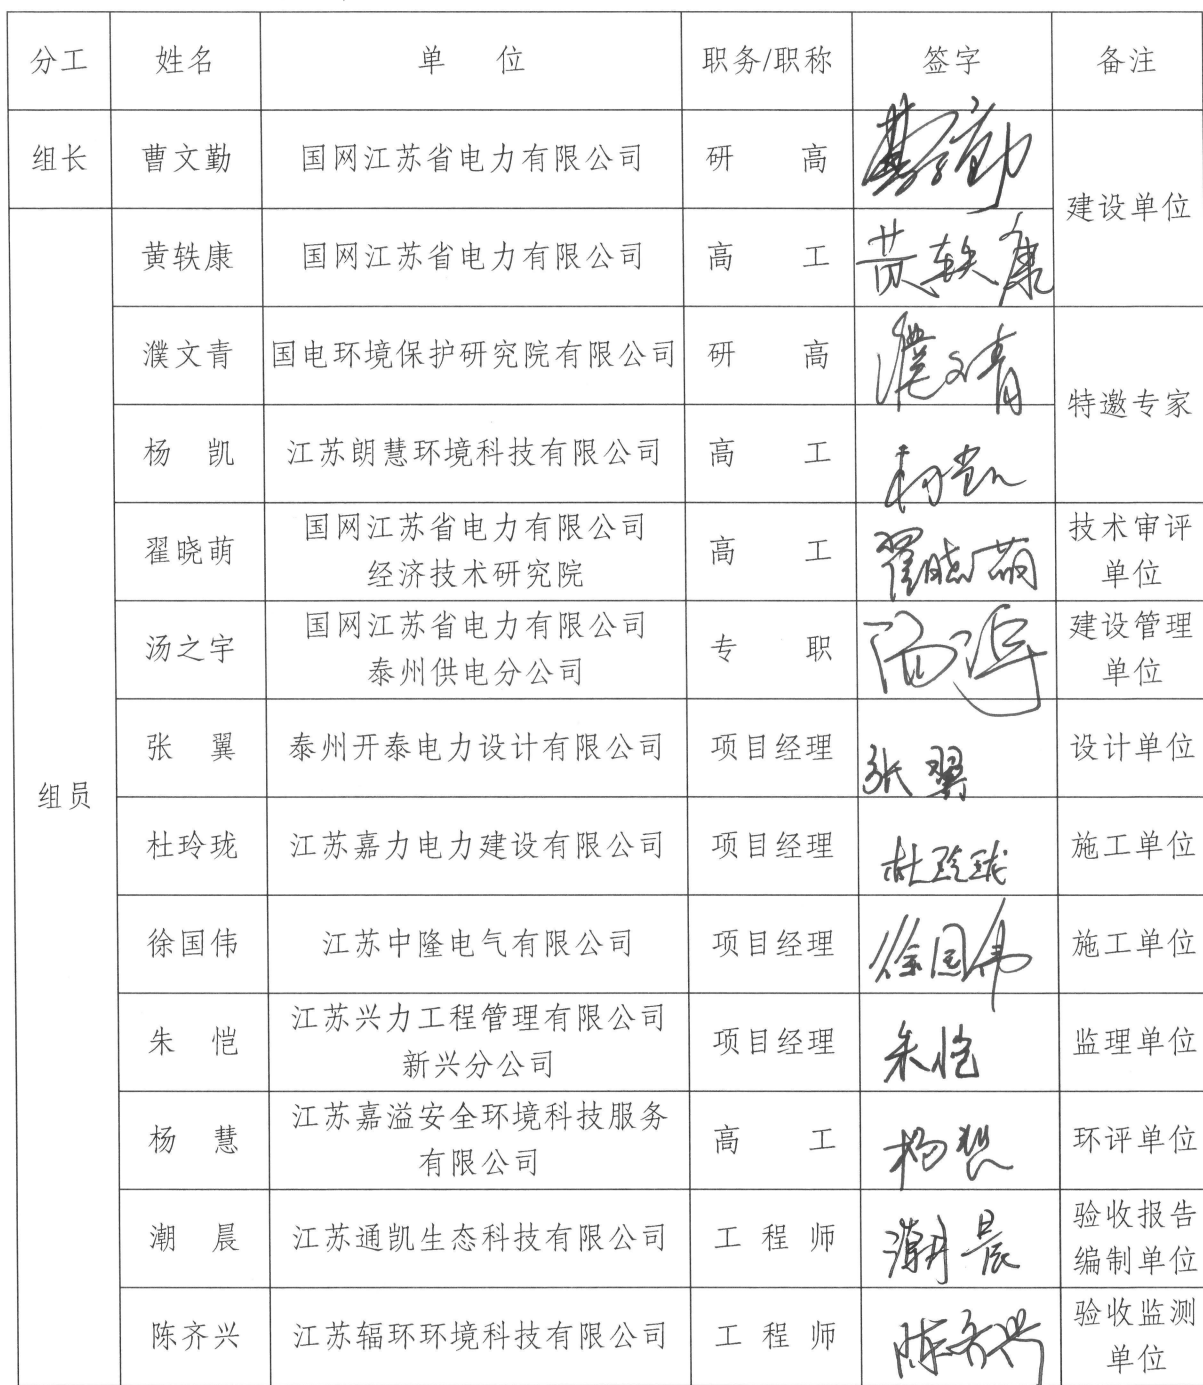 分工 姓名 单 位 职务/职称 签字 备注
组长 曹文勤 国网江苏省电力有限公司 研 高 曹文勤 建设单位
组员
黄轶康 国网江苏省电力有限公司 高 工 黄轶康
濮文青 国电环境保护研究院有限公司 研 高 濮文青 特邀专家
杨 凯 江苏朗慧环境科技有限公司 高 工 杨凯
翟晓萌 国网江苏省电力有限公司
经济技术研究院 高 工 翟晓萌 技术审评
单位
汤之宇 国网江苏省电力有限公司
泰州供电分公司 专 职 建设管理
单位
张 翼 泰州开泰电力设计有限公司 项目经理 张翼 设计单位
杜玲珑 江苏嘉力电力建设有限公司 项目经理 杜玲珑 施工单位
徐国伟 江苏中隆电气有限公司 项目经理 徐国伟 施工单位
朱 恺 江苏兴力工程管理有限公司
新兴分公司 项目经理 朱恺 监理单位
杨 慧 江苏嘉溢安全环境科技服务
有限公司 高 工 杨慧 环评单位
潮 晨 江苏通凯生态科技有限公司 工 程 师 潮晨 验收报告
编制单位
陈齐兴 江苏辐环环境科技有限公司 工 程 师 陈齐兴 验收监测
单位